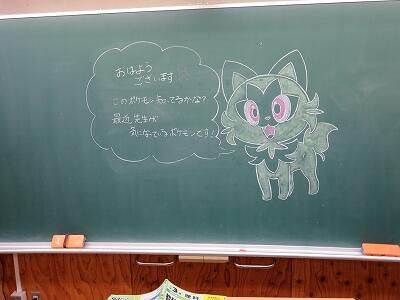 おはよう
ございます
このポケモン知ってるかな?
最近先生が
気になっているポケモンです!